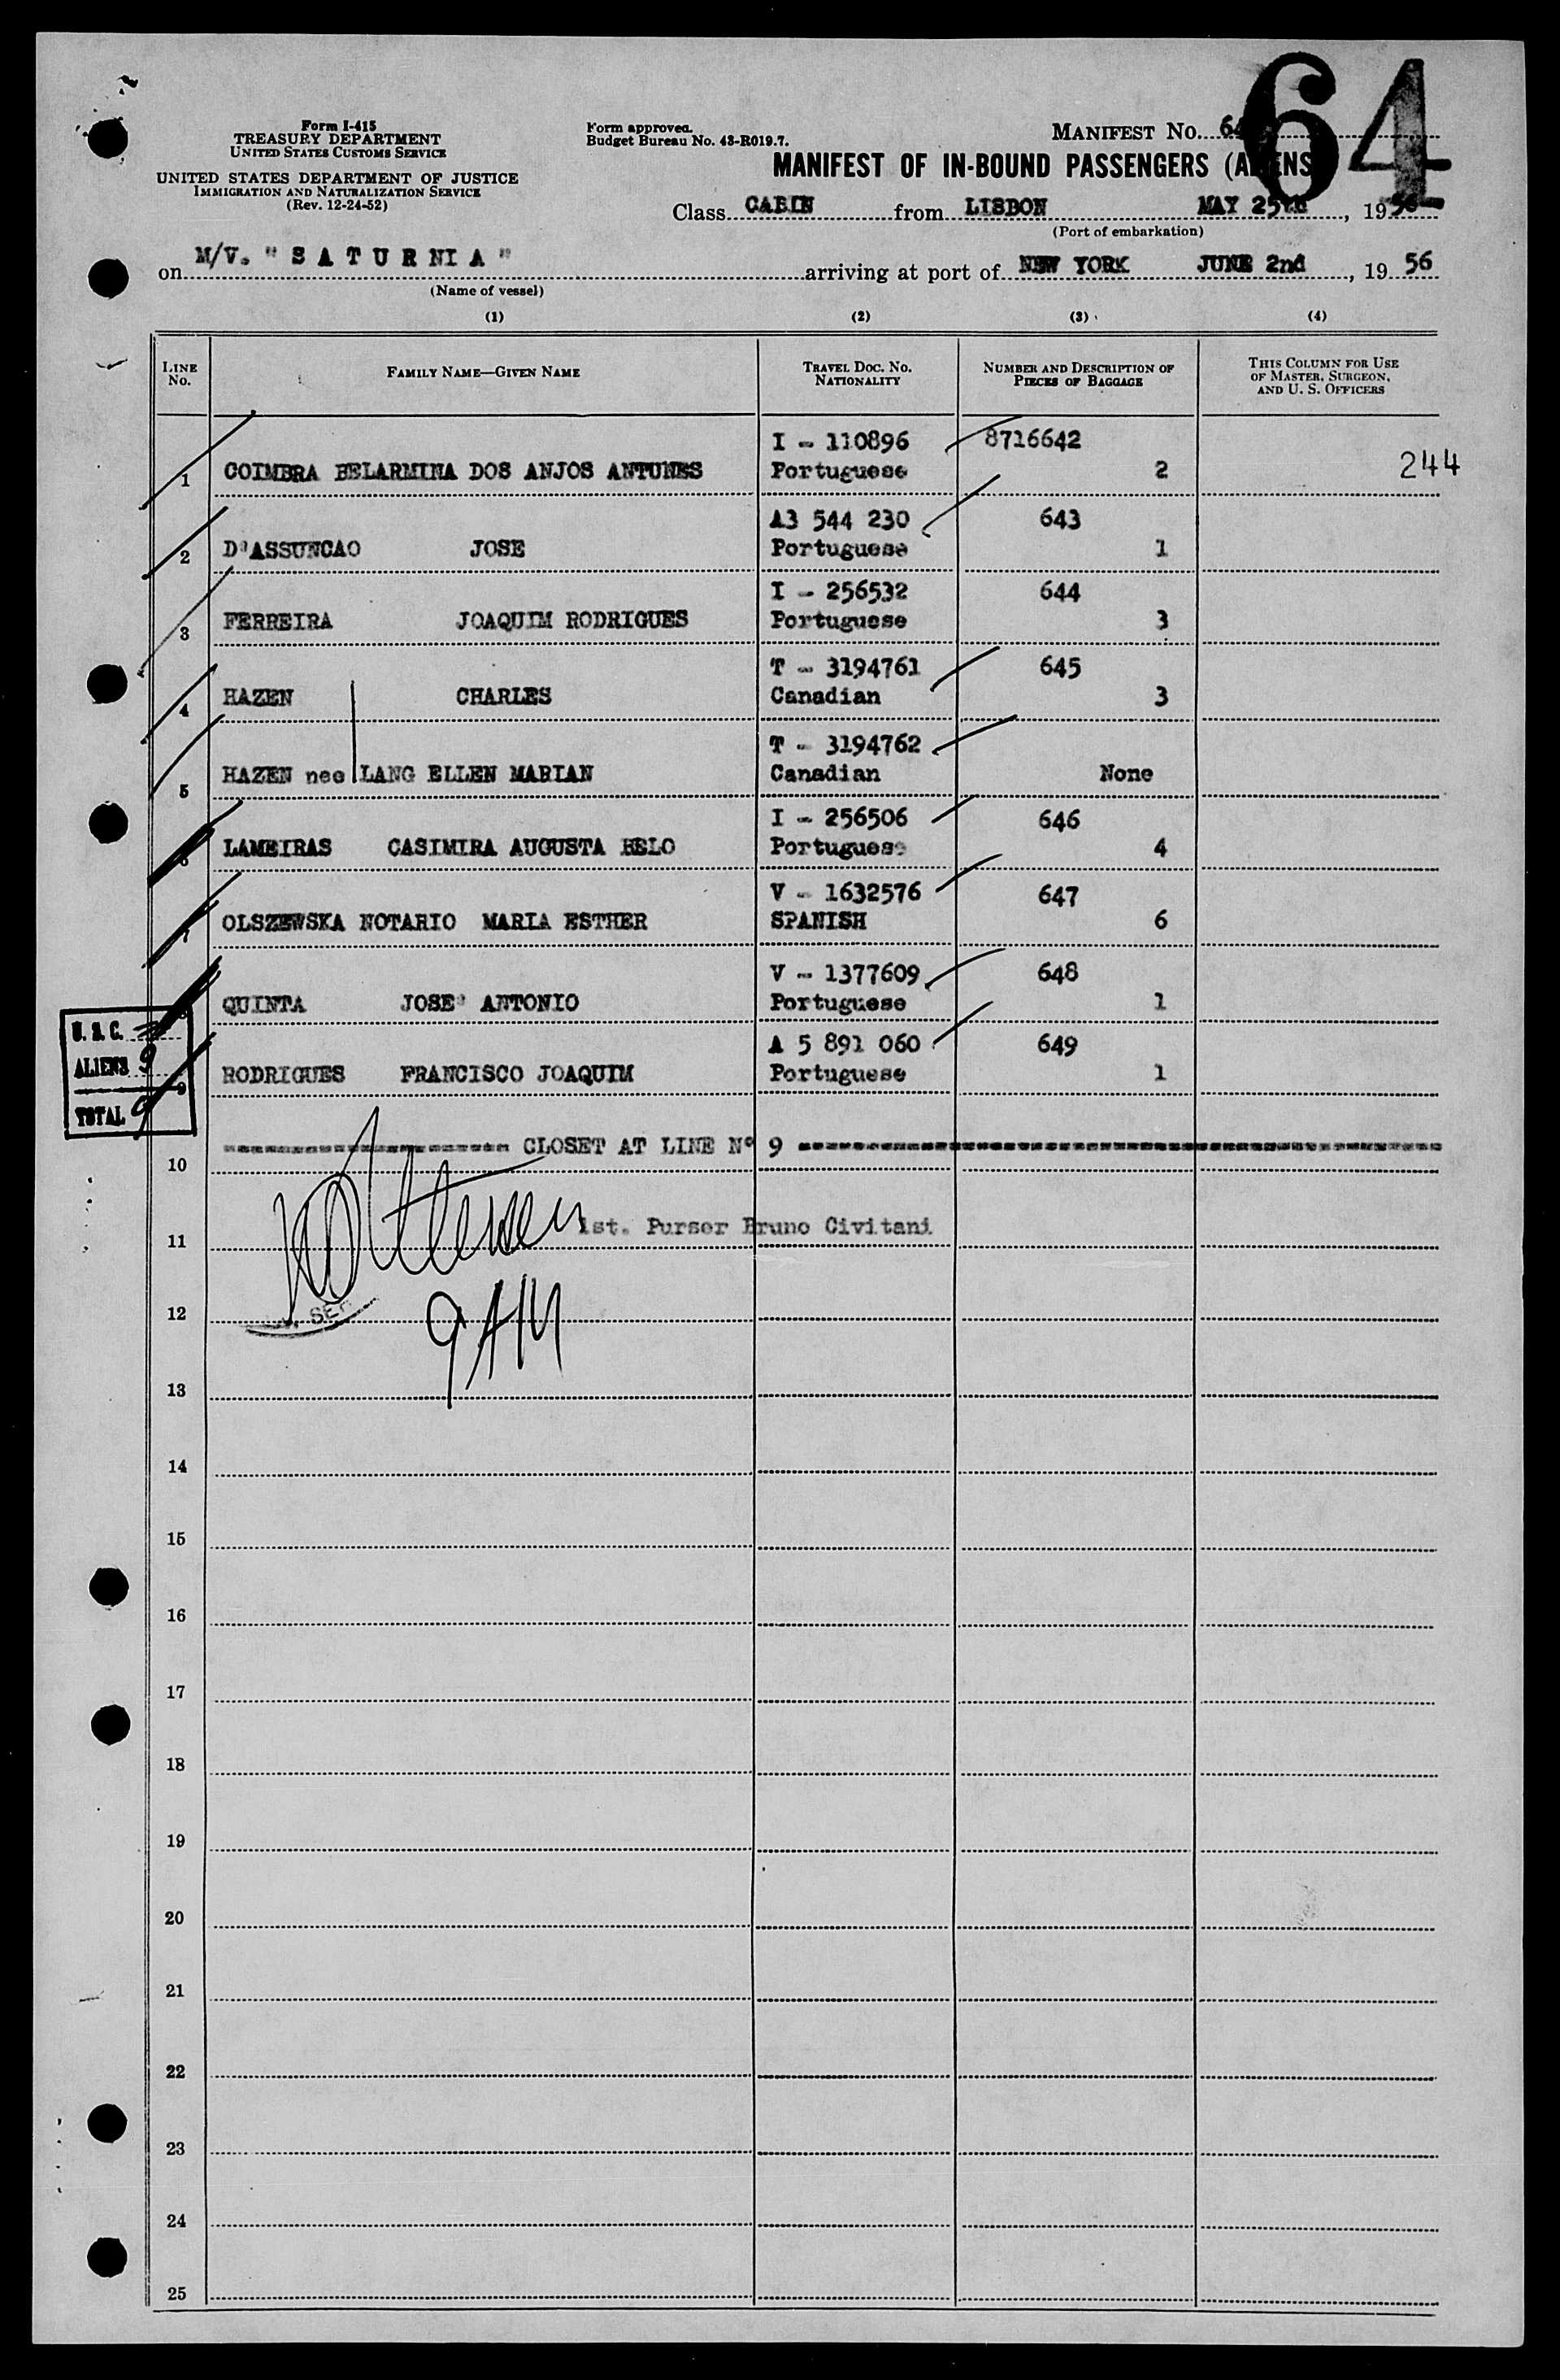 64
Form I-415
TREASURY DEPARTMENT
UNITED STATES CUSTOMS SERVICE
UNITED STATES DEPARTMENT OF JUSTICE
IMMIGRATION AND NATURALIZATION SERVICE
(Rev. 12-24-52)
Form approved.
Budget Bureau No. 43-R019.7.
MANIFEST No. 64
MANIFEST OF IN-BOUND PASSENGERS (ALIENS
Class CABIN from LISBON MAY 25th, 1956
(Port of embarkation)
on M/V. "SATURNIA" arriving at port of NEW YORK JUNE 2nd, 19 56
(Name of vessel)
(1) (2) (3) (4)
LINE No. FAMILY NAME—GIVEN NAME TRAVEL DOC. NO. NATIONALITY NUMBER AND DESCRIPTION OF PIECES OF BAGGAGE THIS COLUMN FOR USE OF MASTER, SURGEON, AND U. S. OFFICERS
I - 110896 8716642
1 COIMBRA BELARMINA DOS ANJOS ANTUNES Portuguese 2 244
A3 544 230 643
2 D'ASSUNCAO JOSE Portuguese 1
I - 256532 644
3 FERREIRA JOAQUIM RODRIGUES Portuguese 3
T - 3194761 645
4 HAZEN CHARLES Canadian 3
T - 3194762
5 HAZEN nee LANG ELLEN MARIAN Canadian None
I - 256506 646
6 LAMEIRAS CASIMIRA AUGUSTA BELO Portuguese 4
V - 1632576 647
7 OLSZEWSKA NOTARIO MARIA ESTHER SPANISH 6
V - 1377609 648
8 QUINTA JOSE' ANTONIO Portuguese 1
A 5 891 060 649
9 RODRIGUES FRANCISCO JOAQUIM Portuguese 1
U. S. C.
ALIENS 9
TOTAL 9
10 CLOSET AT LINE Nº 9
11 1st. Purser Bruno Civitani
12
9 AM
13
14
15
16
17
18
19
20
21
22
23
24
25